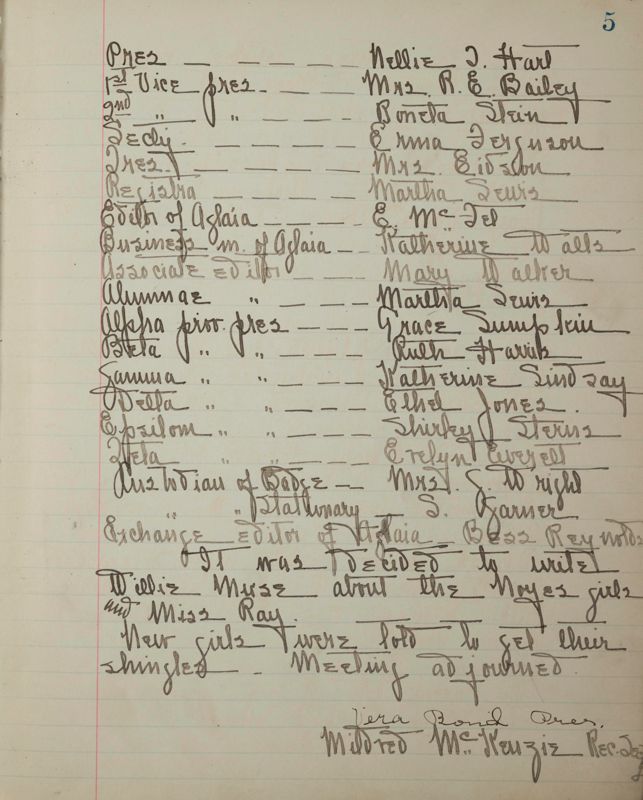 5
Pres — — — — — Nellie T. Hart
1st Vice pres. — — — Mrs. R. E. Bailey
2nd " " — — — Boneta Stein
Secty. — — — — Erma Ferguson
Tres. — — — — Mrs. Eidson
Registra — — — — Martha Seurs
Editor of Aglaia — — — — E. Mc Fel
Business m. of Aglaia — Katherine Walls
Associate editor — — — Mary Walker
Alumnae " — — — Martha Seurs
Alpha prov. pres — — — Grace Lumpkin
Beta " " — — — Ruth Harris
Gamma " " — — — Katherine Lindsay
Delta " " — — — Ethel Jones.
Epsilom " " — — — Shirley Sterns
Zeta " " — — — Evelyn Everett
Custodian of Badge — Mrs. J. Wright
" " Stationary — S. Garner
Exchange editor of Aglaia — Bess Reynolds
It was decided to write
Willie Muse about the Noyes girls
and Miss Ray.
New girls were told to get their
shingles. Meeting adjourned.
Vera Bond Pres.
Mildred Mc Kenzie Rec.